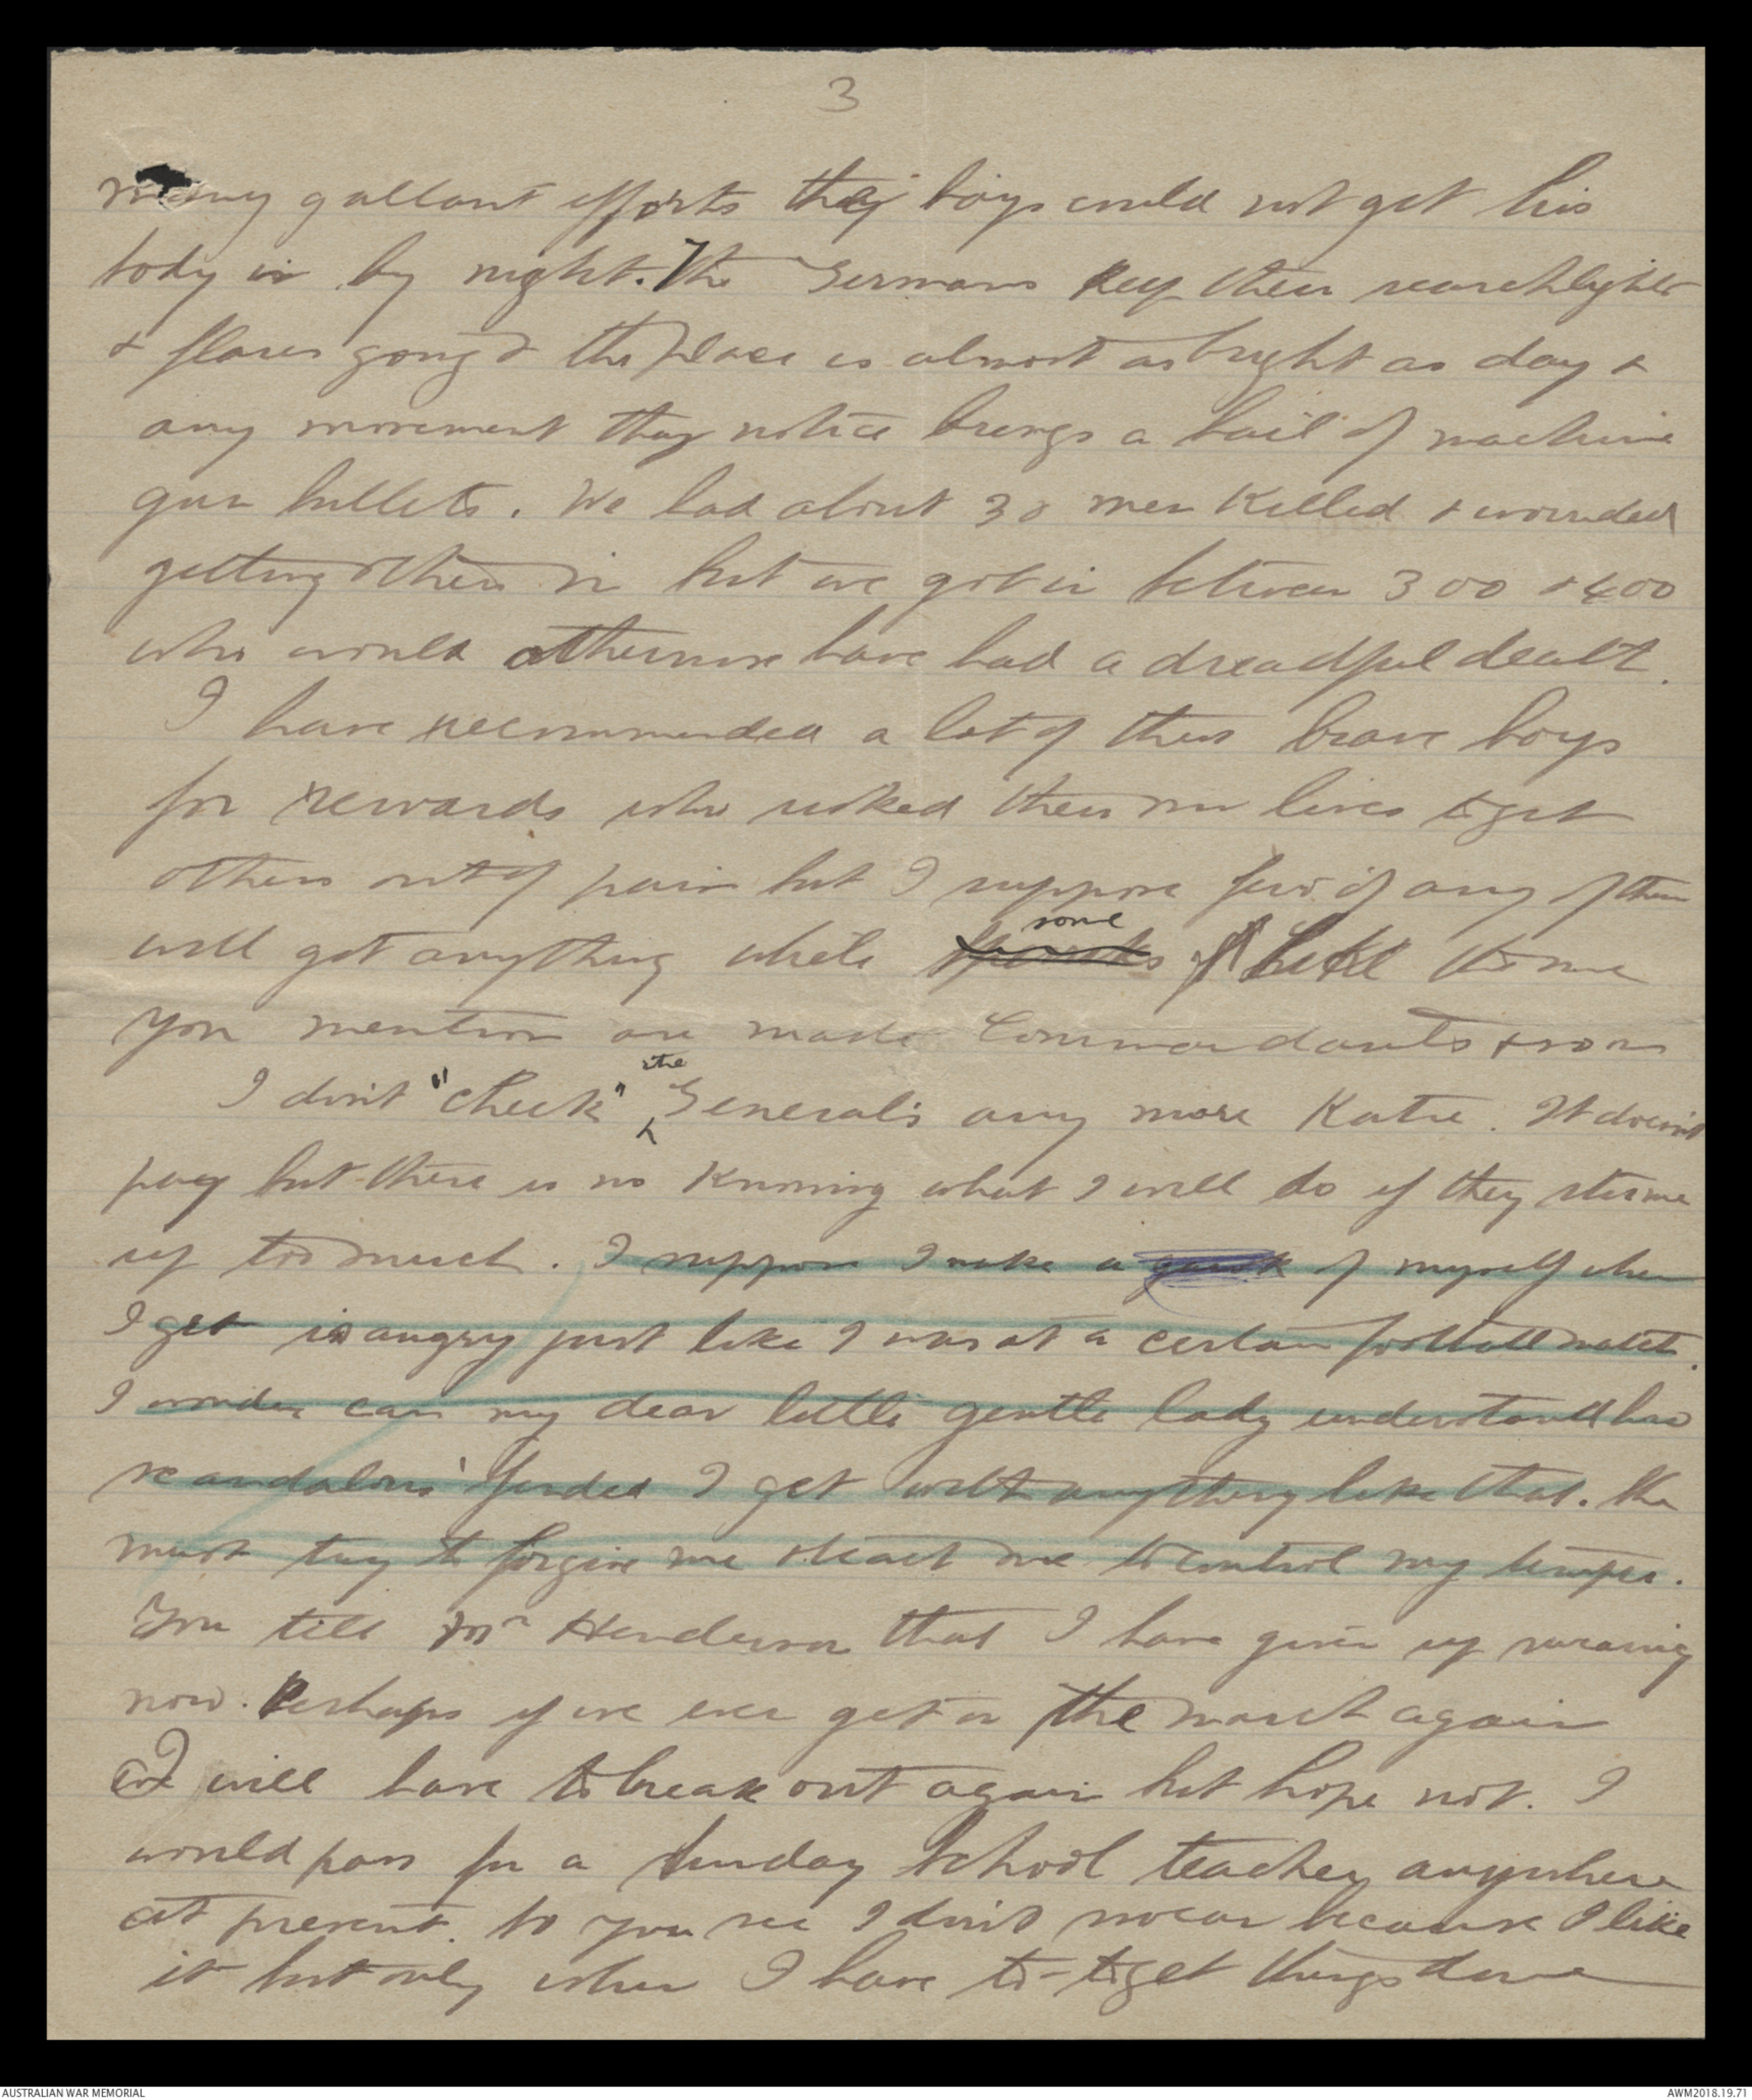 3
many gallant efforts they boys could not get his
body in by night. The Germans keep their searchlights
& flares going & the place is almost as bright as day &
any movement they notice brings a hail of machine
gun bullets. We had about 30 men killed & wounded
getting others in but we got in between 300 & 400
who would otherwise have had a dreadful death.
I have recommended a lot of these brave boys
for rewards who risked their own lives to get
others out of pain but I suppose few if any of them
will get anything while some of like the one
you mention are made Commandants & so on
I don't "cheek" the Generals any more Katie. It doesn't
pay but there is no knowing what I will do if they stir me
up too much. I suppose I make a of myself when
I get is angry just like I was at a certain football match.
I wonder can my dear little gentle lady understand how
scandalous I get with anything like that. She
must try to forgive me & teach me to control my temper.
You tell Mr Henderson that I have given up swearing
now. Perhaps if we ever get on the march again
I will have to break out again but hope not. I
would pass for a Sunday School teacher anywhere
at present. So you see I don't swear because I like
it but only when I have to - to get things done
AUSTRALIAN WAR MEMORIAL
AWM2018.19.71